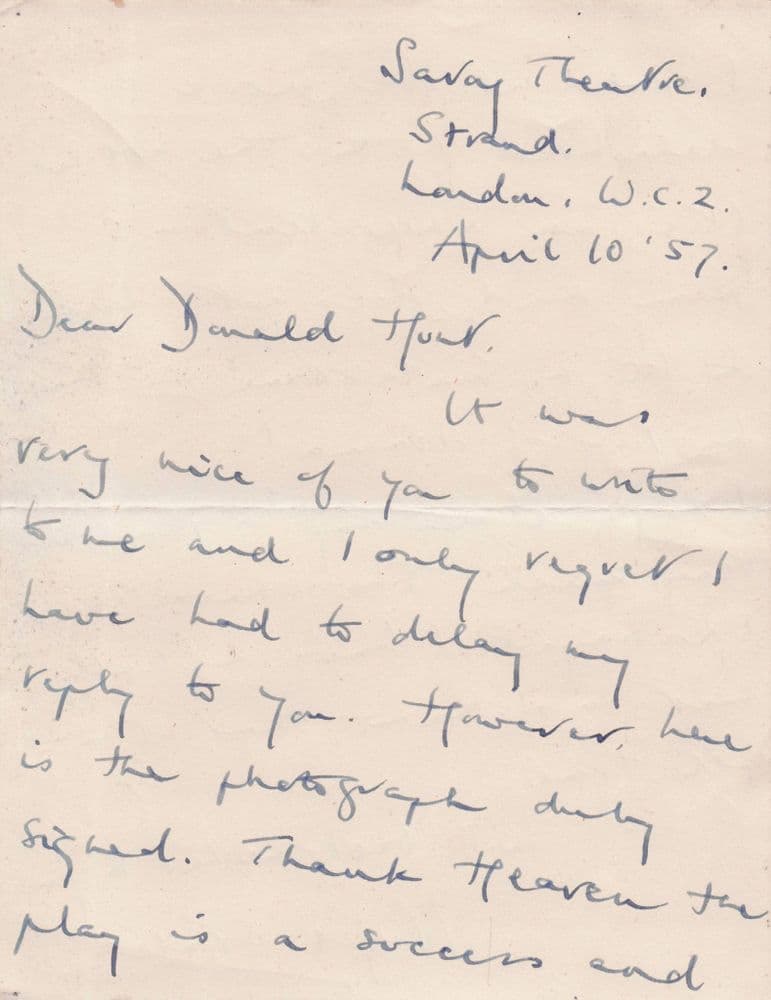 Savoy Theatre.
Strand.
London. W.C.2.
April 10 '57.
Dear Donald Hunt.
It was
very nice of you to write
to me and I only regret I
have had to delay my
reply to you. However, here
is the photograph duly
signed. Thank Heaven the
play is a success and